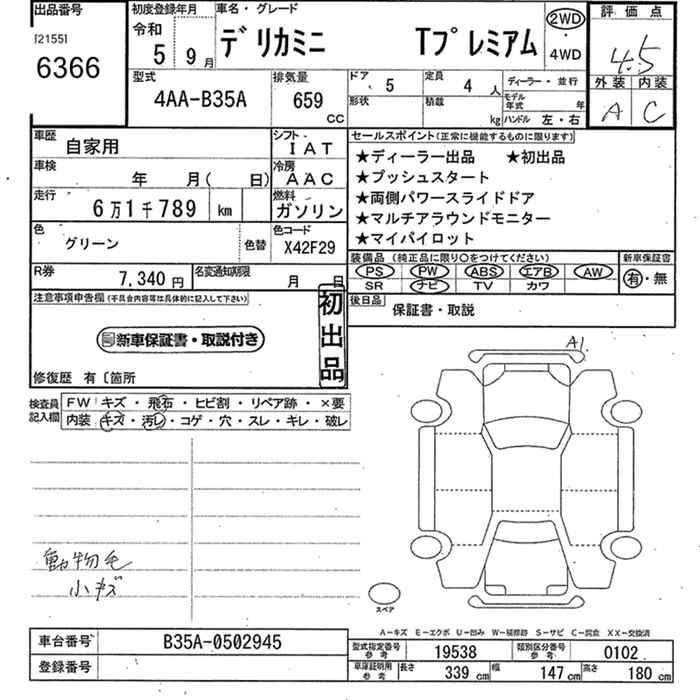 出品番号
[2155]
6366
初度登録年月
令和
5年 9月
車名・グレード
デリカミニ Tプレミアム
2WD
・
4WD
評価点
4.5
外装 内装
A C
型式
4AA-B35A
排気量
659
CC
ドア
5
形状
定員
4人
積載
kg
ディーラー・並行
モデル年式 年
ハンドル 左・右
車歴
自家用
シフト
IAT
車検
年 月( 日)
冷房
AAC
走行
6万1千789 km
燃料
ガソリン
色
グリーン
色替
色コード
X42F29
R券
7,340円
名変通知期限
月 日
セールスポイント(正常に機能するものに限ります)
★ディーラー出品 ★初出品
★プッシュスタート
★両側パワースライドドア
★マルチアラウンドモニター
★マイパイロット
装備品 (純正品に限り○をつけてください)
PS PW ABS エアB AW
SR ナビ TV カワ
新車保証書
有・無
後日品
保証書・取説
注意事項申告欄(不具合内容等は具体的に記入して下さい)
新車保証書・取説付き
初出品
修復歴 有〔箇所
検査員記入欄
FW キズ・飛石・ヒビ割・リペア跡・×要
内装 キズ・汚レ・コゲ・穴・スレ・キレ・破レ
動物毛
小キズ
A1
スペア
A-キズ E-エクボ U-凹み W-補修跡 S-サビ C-腐食 XX-交換済
車台番号
B35A-0502945
登録番号
型式指定番号参考
19538
類別区分番号参考
0102
車庫証明用参考
長さ 339cm 幅 147cm 高さ 180cm